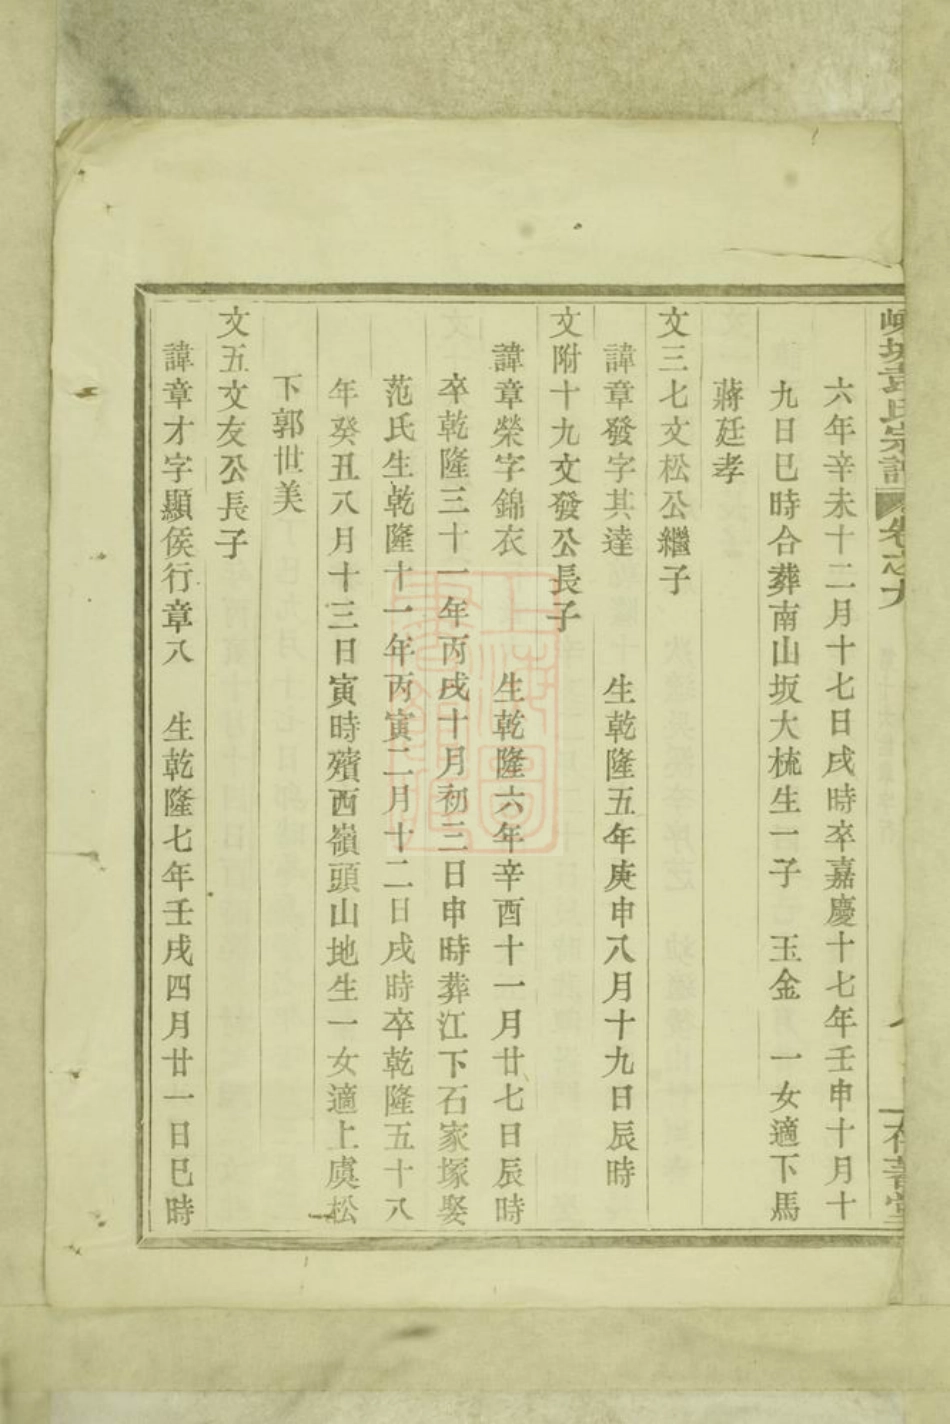 嵊城袁氏宗譜 卷之九 存善堂
六年辛未十二月十七日戌時卒嘉慶十七年壬申十月十
九日巳時合葬南山坂大梳生一子 玉金 一女適下馬
蔣廷孝
文三七文松公繼子
諱章發字其達 生乾隆五年庚申八月十九日辰時
文附十九文發公長子
諱章榮字錦衣 生乾隆六年辛酉十一月廿七日辰時
卒乾隆三十一年丙戌十月初三日申時葬江下石家塚娶
范氏生乾隆十一年丙寅二月十二日戌時卒乾隆五十八
年癸丑八月十三日寅時殯西嶺頭山地生一女適上虞松
下郭世美
文五文友公長子
諱章才字顯侯行章八 生乾隆七年壬戌四月廿一日巳時